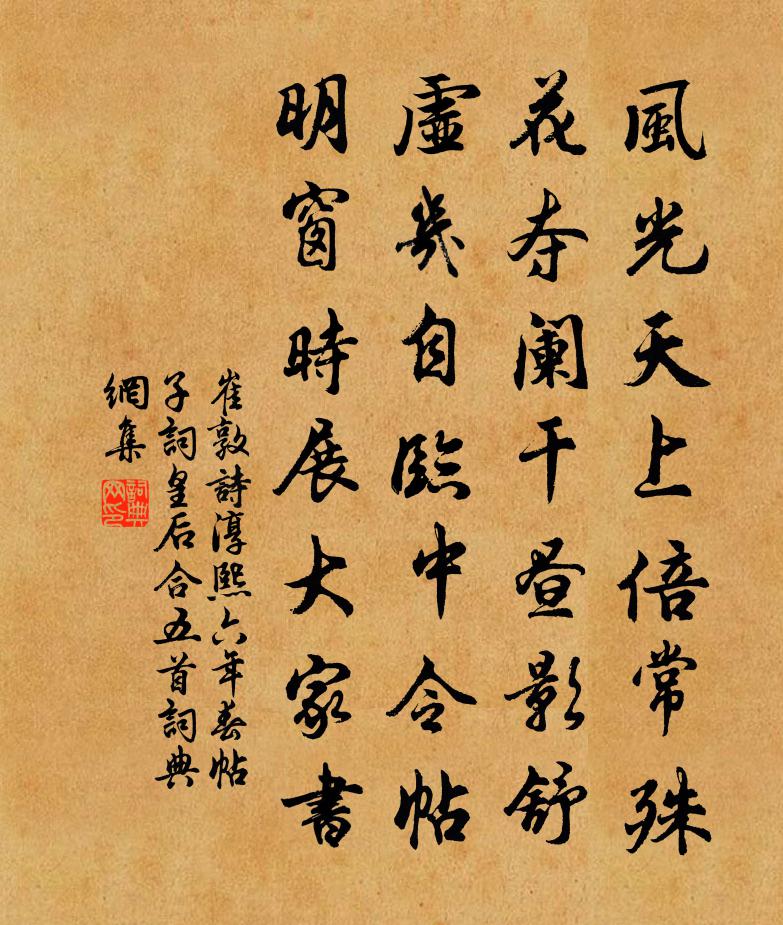 風光天上倍常殊
花夺闌干昼影舒
虛幾自臨中令帖
明窗時展大家書
崔敦詩淳熙六年春帖
子詞皇后合五首詞典
網集
詞典
网印